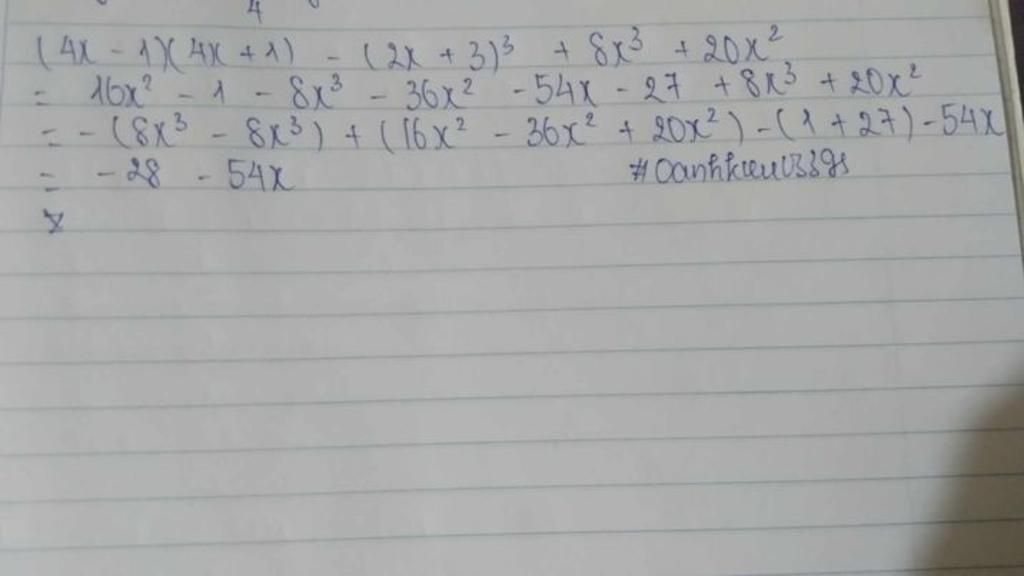 4
(4x - 1)(4x + 1) - (2x + 3)³ + 8x³ + 20x²
= 16x² - 1 - 8x³ - 36x² - 54x - 27 + 8x³ + 20x²
= -(8x³ - 8x³) + (16x² - 36x² + 20x²) - (1 + 27) - 54x
= -28 - 54x